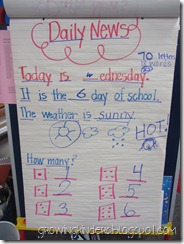 Daily News
70 letters
words
Today is Wednesday.
It is the 6 day of school.
The weather is sunny.
HOT!
How many?
1 4
2 5
3 6
growingkinders.blogspot.com